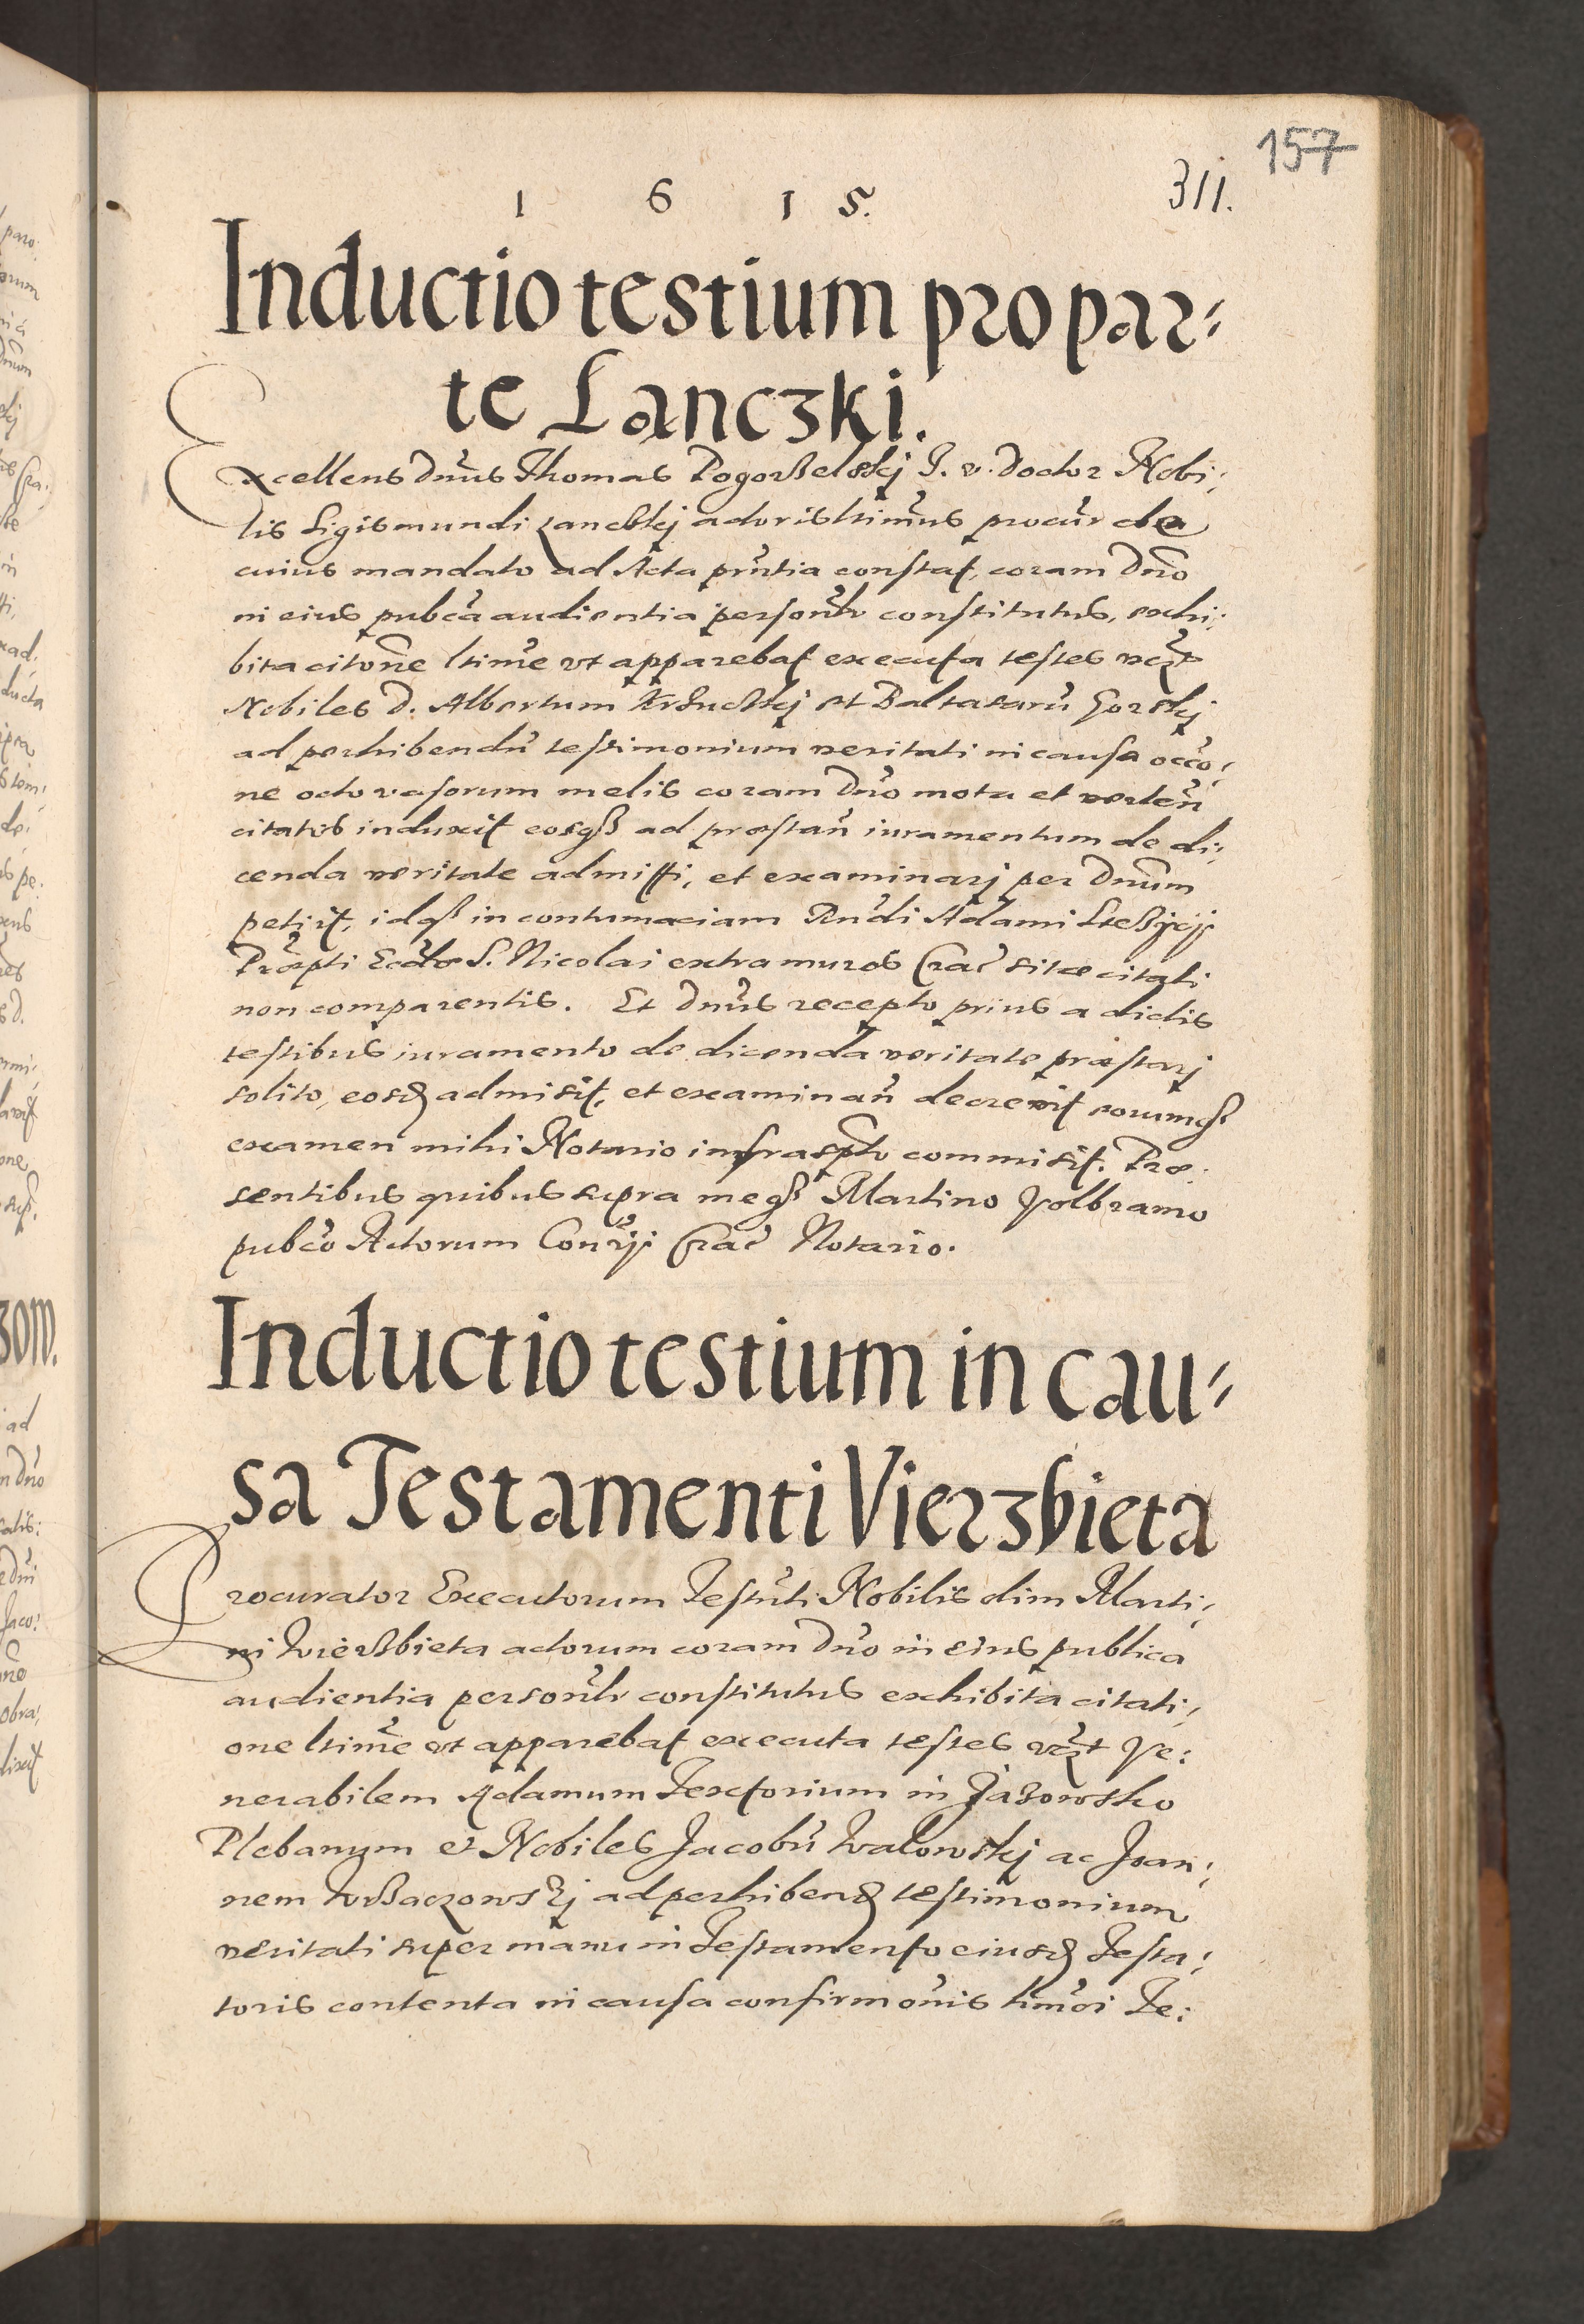 157
1 6 1 5.
311.
Inductio testium pro par:
te Lanczki.
Excellens Dnus Thomas Pogorßelskj J. v. Doctor Nobi:
lis Sigismundi Lanckj actoris ltimus procur de
cuius mandato ad Acta pntia constat, coram Dno
in eius pubca audientia personlr constitutus, exhi:
bita citone ltime vt apparebat executa testes vczt
Nobiles D. Albertum et Baltasaru Gorskj
ad perhibendu testimonium veritati in causa occo:
ne octo vasorum melis coram Dno mota et verten
citatis induxit eosqß ad præstan iuramentum de di:
cenda veritate admitti, et examinarj per Dnum
petijt, idqß in contumaciam Rndi Adami
Præpti Eccliæ S. Nicolai extra muros Crac sitæ citati
non comparentis. Et Dnus recepto prius a dictis
testibus iuramento de dicenda veritate præstarj
solito, eosd admisit, et examinan decrevit eorumqß
examen mihi Notario infraspto commisit. Præ:
sentibus quibus supra meqß Martino Volbramo
pubco Actorum Conrij Crac Notario.
Inductio testium in cau:
sa Testamenti Vierzbieta
Procurator Executorum Testnti Nobilis olim Marti:
ni Wierßbieta actorum coram Dno in eius publica
audientia personlr constitutus exhibita citati:
one ltime vt apparebat executa testes vczt Ve:
nerabilem Adamum Textorium in Jazowsko
Plebanum et Nobiles Jacobu Walowskj ac Joan:
nem ad perhibend testimonium
veritati super manu in Testamento eiusd Testa:
toris contenta in causa confirmonis hmoi Te: